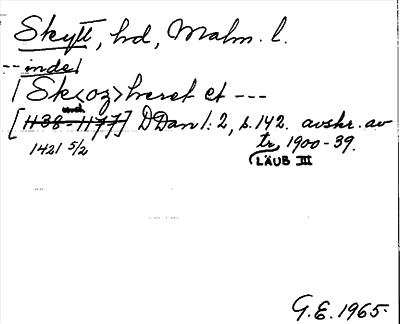 Skytt, hd, Malm. l.
-- inde
| Sk<oz>heret et ---
[1138-1177] DDan 1:2, s. 142. avskr. av
1421 5/2 tr, 1900-39.
LÄUB III
G.E. 1965.